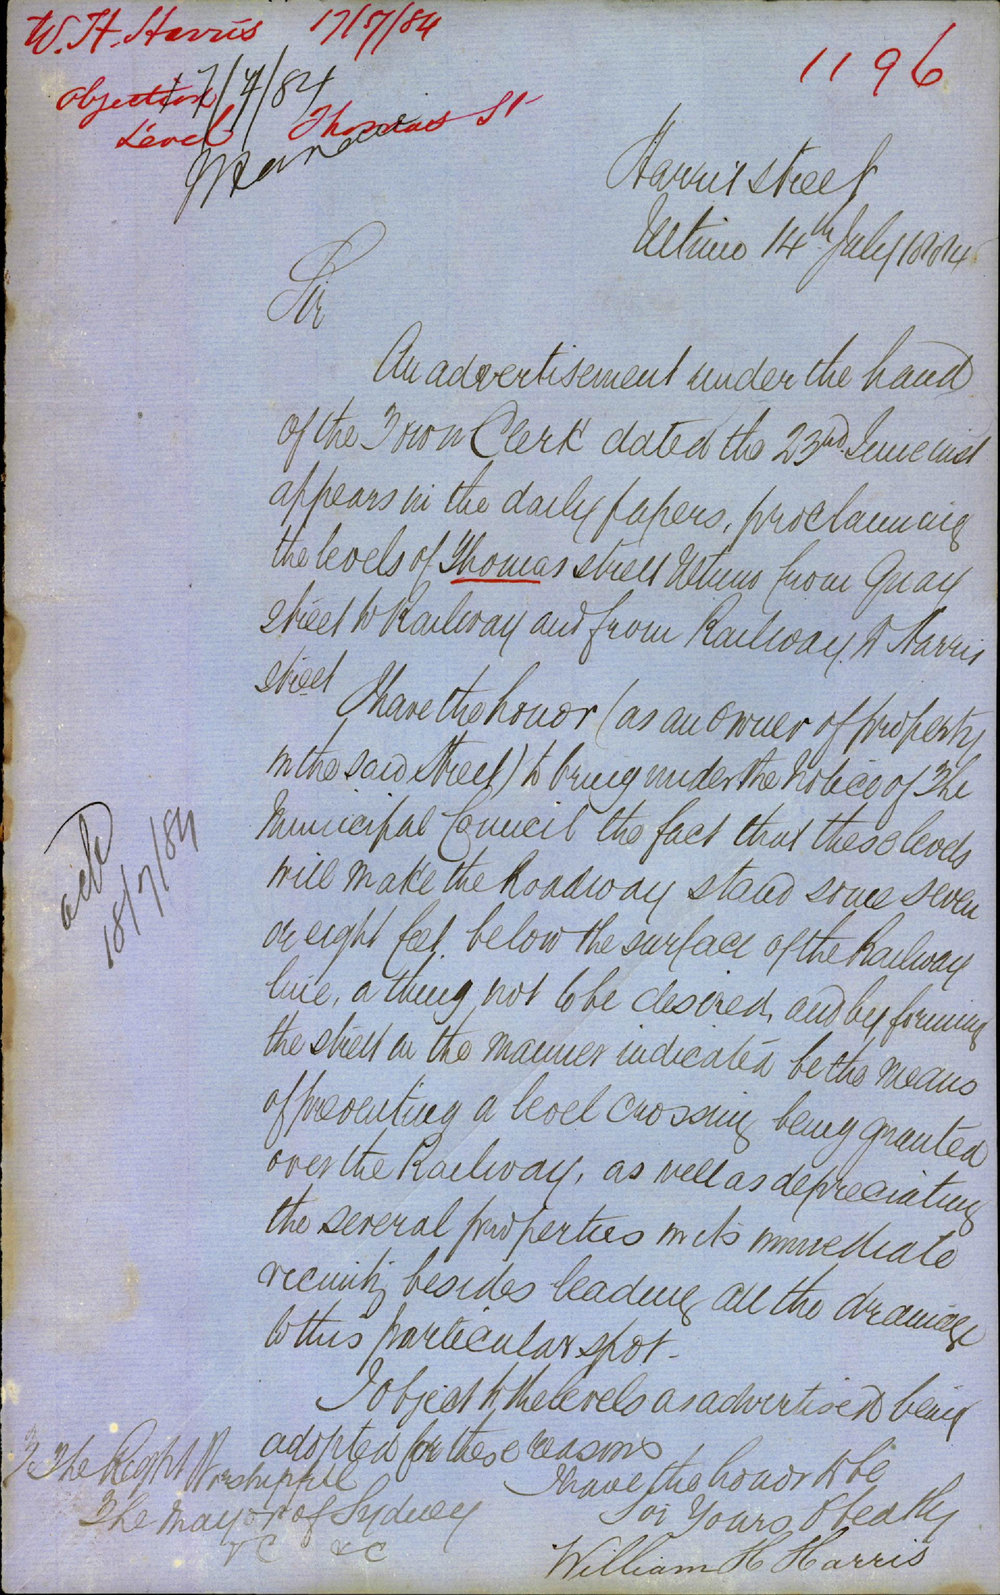 W. H. Harris 17/7/84
1196
Objection
17/7/84
Level Thomas St
Harris Street
Ultimo 14th July 1884
Sir
An advertisement under the hand
of the Town Clerk dated the 23rd June inst
appears in the daily papers, proclaiming
the levels of Thomas street Ultimo from Quay
street to Railway and from Railway to Harris
street
I have the honor (as an owner of property
in the said Street) to bring under the notice of The
Municipal Council the fact that these levels
will make the Roadway stand some seven
or eight feet below the surface of the Railway
line, a thing not to be desired, and by forming
the street in the manner indicated be the means
of preventing a level crossing being granted
over the Railway, as well as depreciating
the several properties in its immediate
vicinity besides leading all the drainage
to this particular spot.
I object to the levels as advertised being
adopted for these reasons
I have the honor to be
Sir Yours Obedtly
William H Harris
To The Right Worshipful
The Mayor of Sydney
&c &c
ack
18/7/84